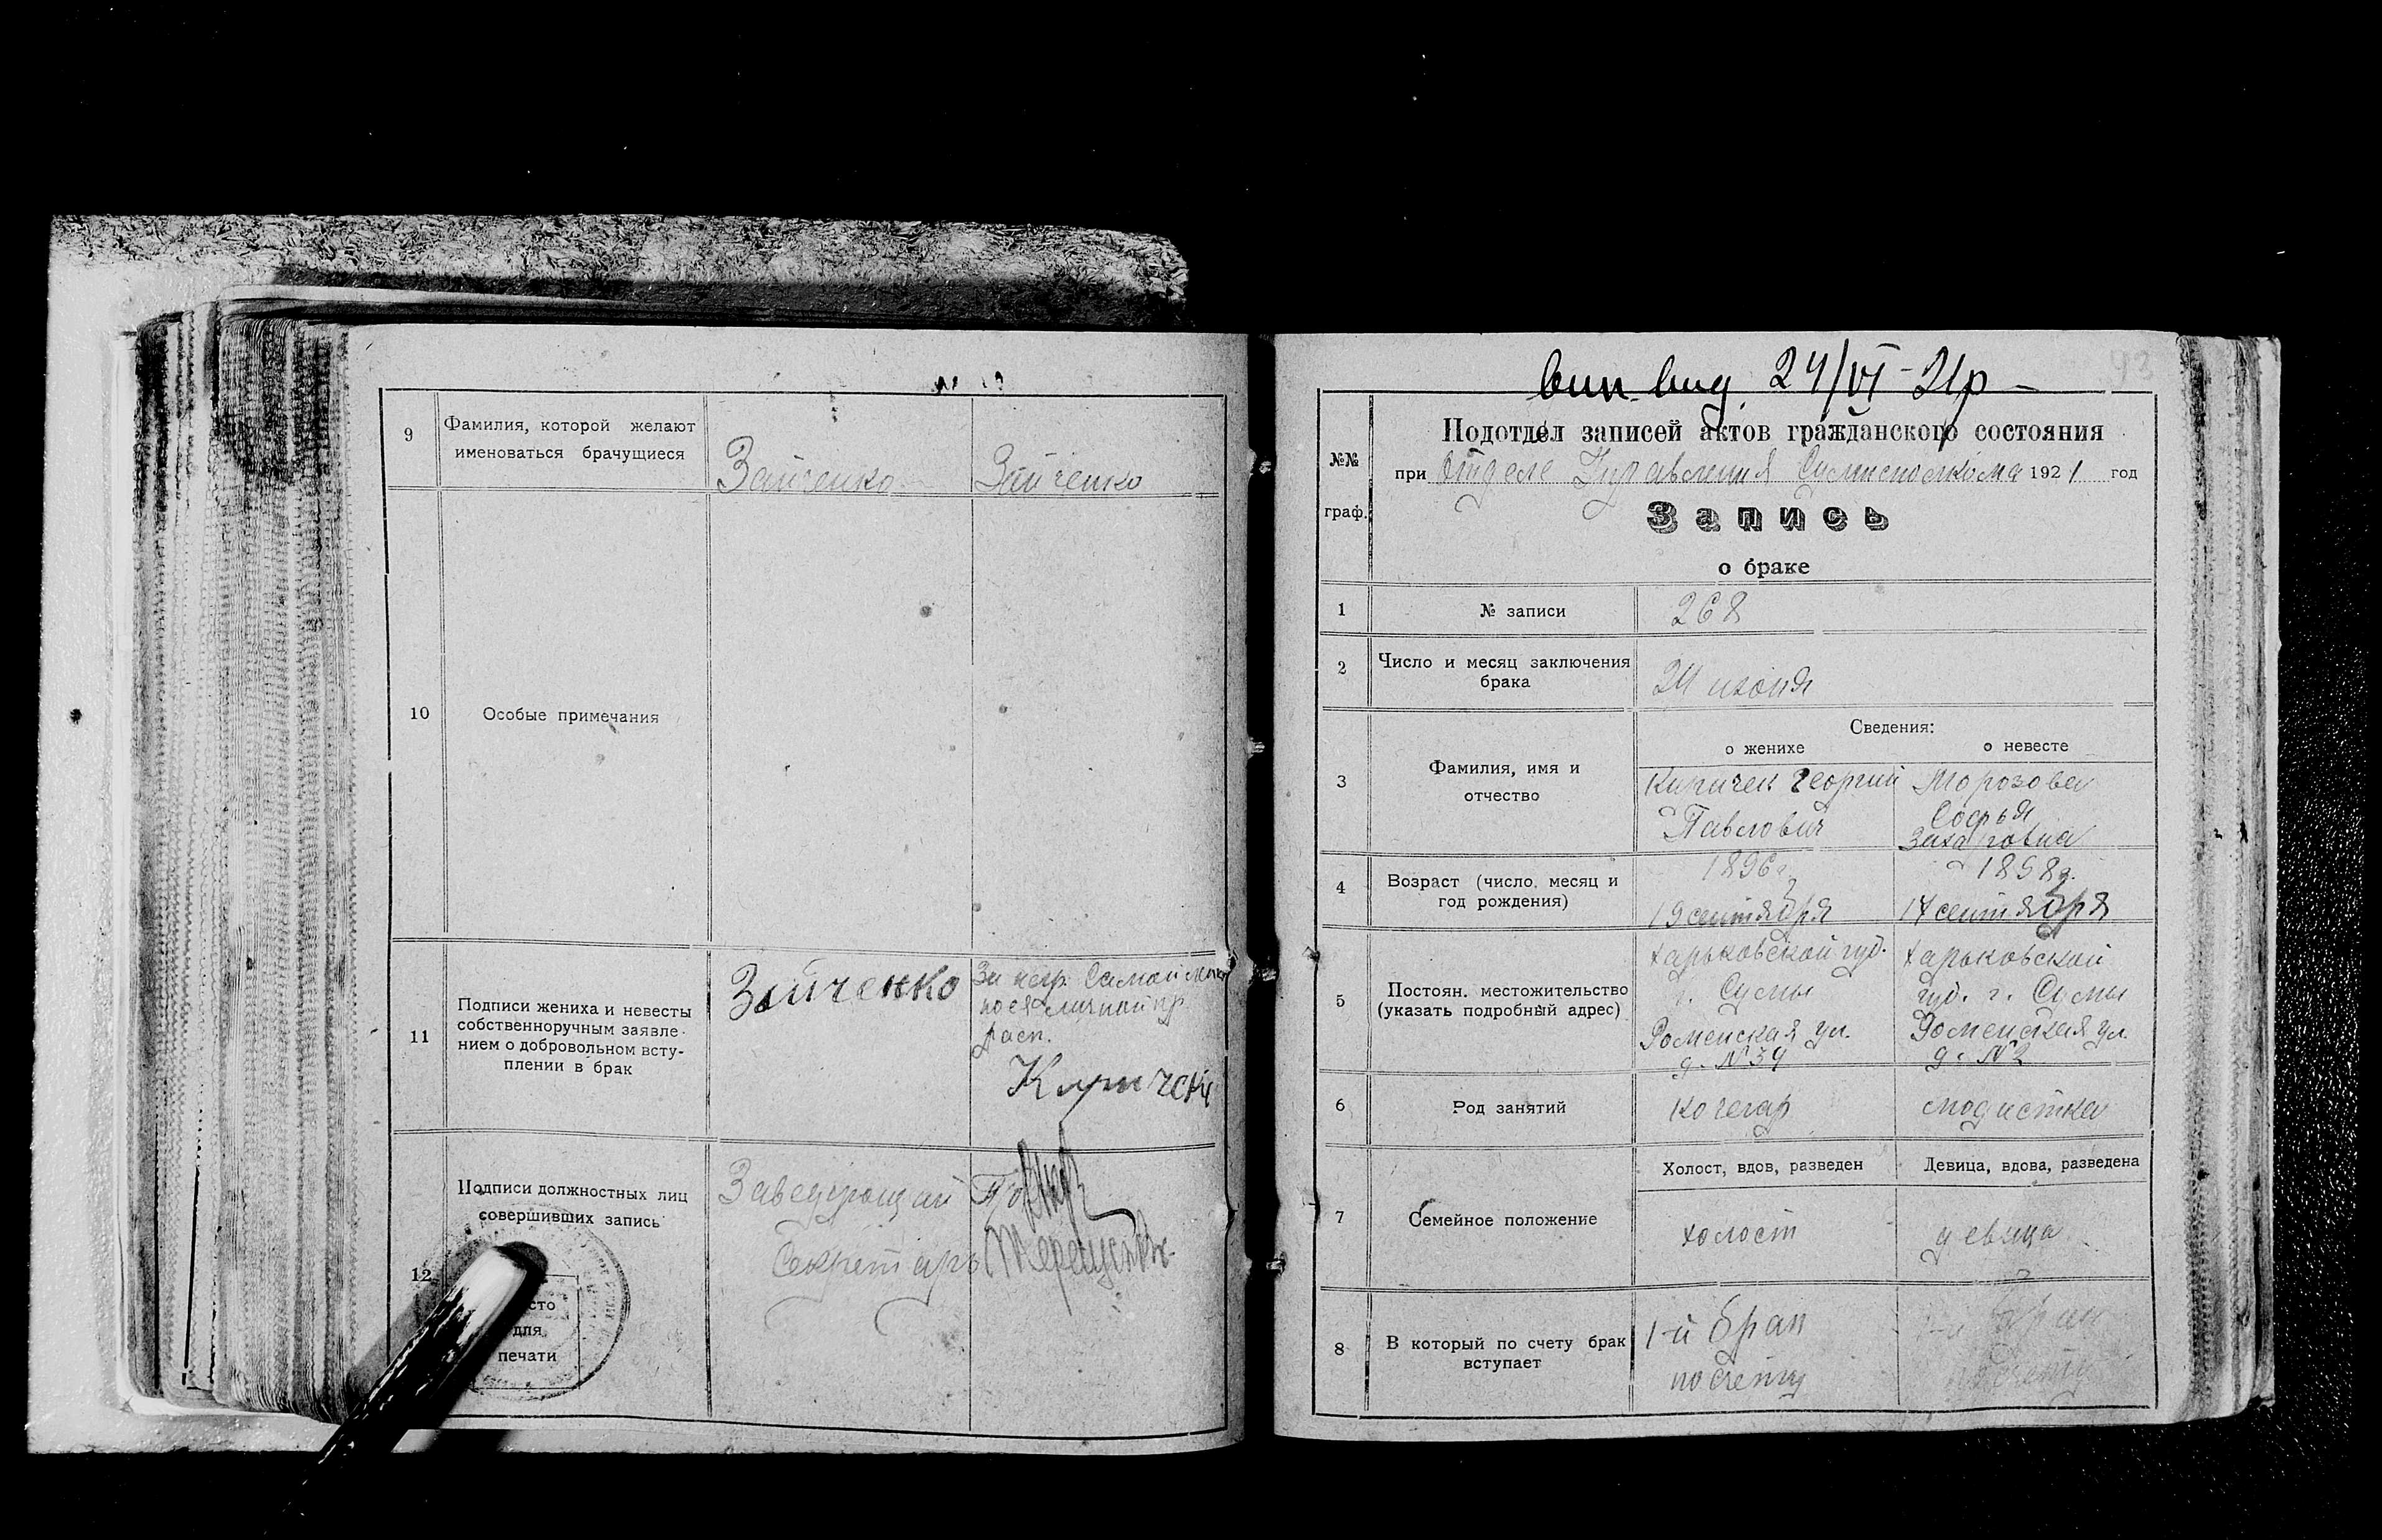 9
Фамилия, которой желают
именоваться брачущиеся
Зайченко
Зайченко
10
Особые примечания
11
Подписи жениха и невесты
собственноручным заявле-
нием о добровольном всту-
плении в брак
Зайченко
За негр.
по ея личной пр.
расп.
12
Подписи должностных лиц
совершивших запись
Заведующий
Секретарь
для
печати
93
вип. вид. 24/VI-21р
№№
граф.
Подотдел записей актов гражданского состояния
при Отделе Управления Сумисполкома 1921 год
Запись
о браке
1
№ записи
268
2
Число и месяц заключения
брака
24 июня
Сведения:
о женихе
о невесте
3
Фамилия, имя и
отчество
Кипичек Георгий
Павлович
Морозова
Софья
Захаровна
4
Возраст (число, месяц и
год рождения)
1896г.
19 сентября
1898г.
17 сентября
5
Постоян. местожительство
(указать подробный адрес)
Харьковской губ.
г. Сумы
Роменская ул.
д. № 39
Харьковской
губ. г. Сумы
Роменская ул.
д. № 2
6
Род занятий
кочегар
модистка
7
Семейное положение
Холост, вдов, разведен
холост
Девица, вдова, разведена
девица
8
В который по счету брак
вступает
1-й брак
по счету
1-й брак
по счету